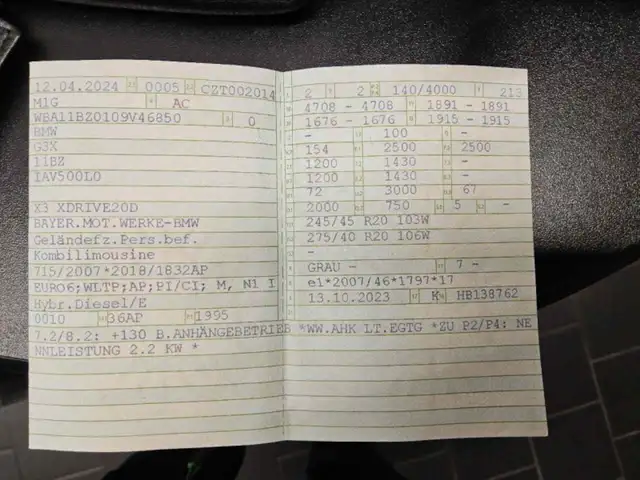 12.04.2024 0005 CZT002014
M1G AC
WBA11BZ0109V46850 0
BMW
G3X
11BZ
1AV500L0
X3 XDRIVE20D
BAYER.MOT.WERKE-BMW
Geländefz.Pers.bef.
Kombilimousine
715/2007*2018/1832AP
EURO6;WLTP;AP;PI/CI; M, N1 I
Hybr.Diesel/E
0010 36AP 1995
2 2 140/4000 213
4708 - 4708 1891 - 1891
1676 - 1676 1915 - 1915
- 100 -
154 2500 2500
1200 1430 -
1200 1430 -
72 3000 67
2000 750 5 -
245/45 R20 103W
275/40 R20 106W
-
GRAU - 7 -
e1*2007/46*1797*17
13.10.2023 K HB138762
7.2/8.2: +130 B.ANHÄNGEBETRIEB *WW.AHK LT.EGTG *ZU P2/P4: NE
NNLEISTUNG 2.2 KW *